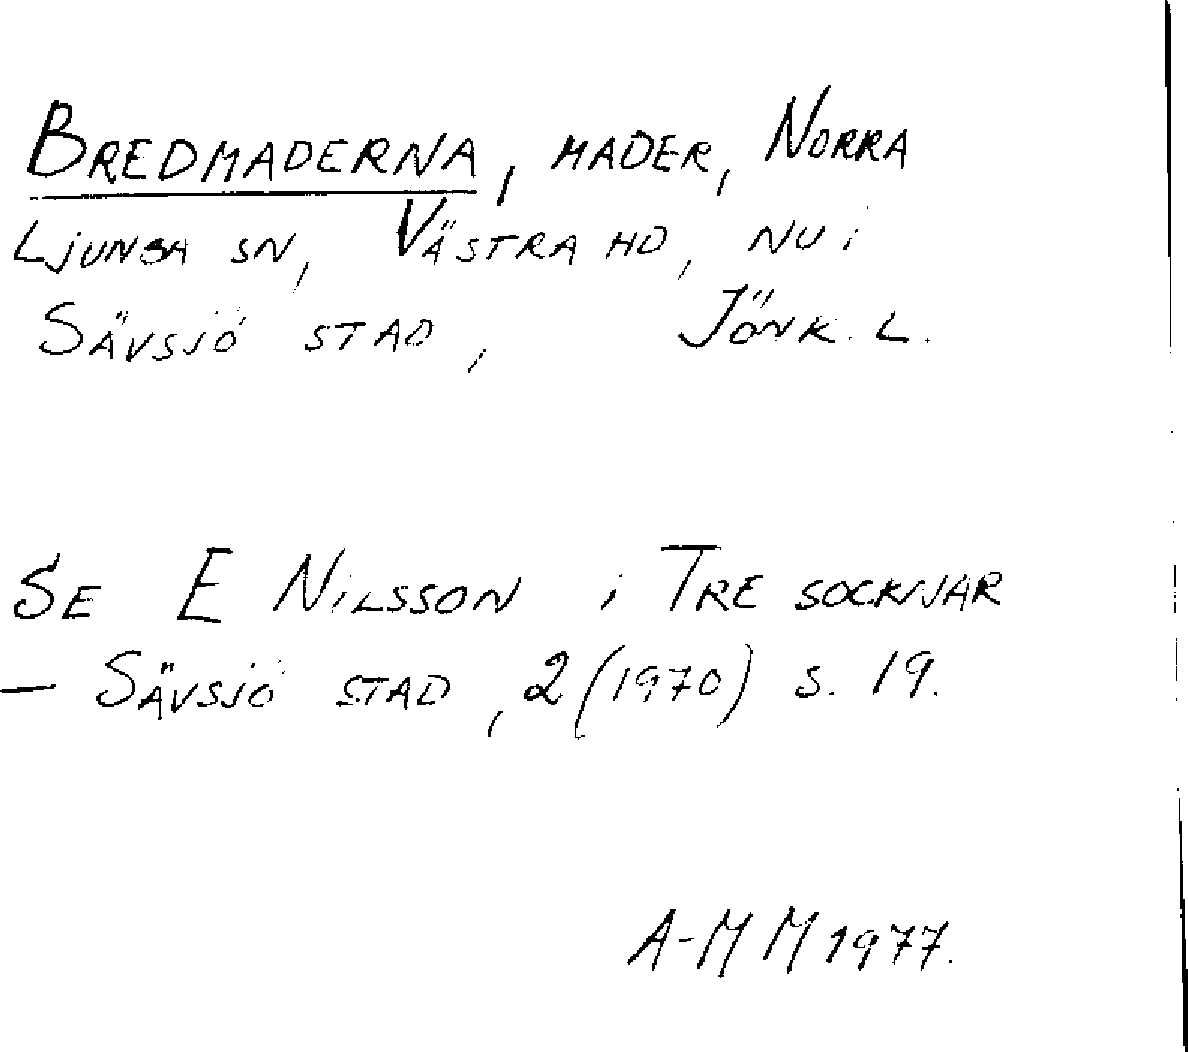 BREDMADERNA, MADER, NORRA
LJUNGA SN, VÄSTRA HD, NU i
SÄVSJÖ STAD, JÖNK. L.
SE E NILSSON i TRE SOCKNAR
— SÄVSJÖ STAD, 2 (1970) S. 19.
A-M M 1977.